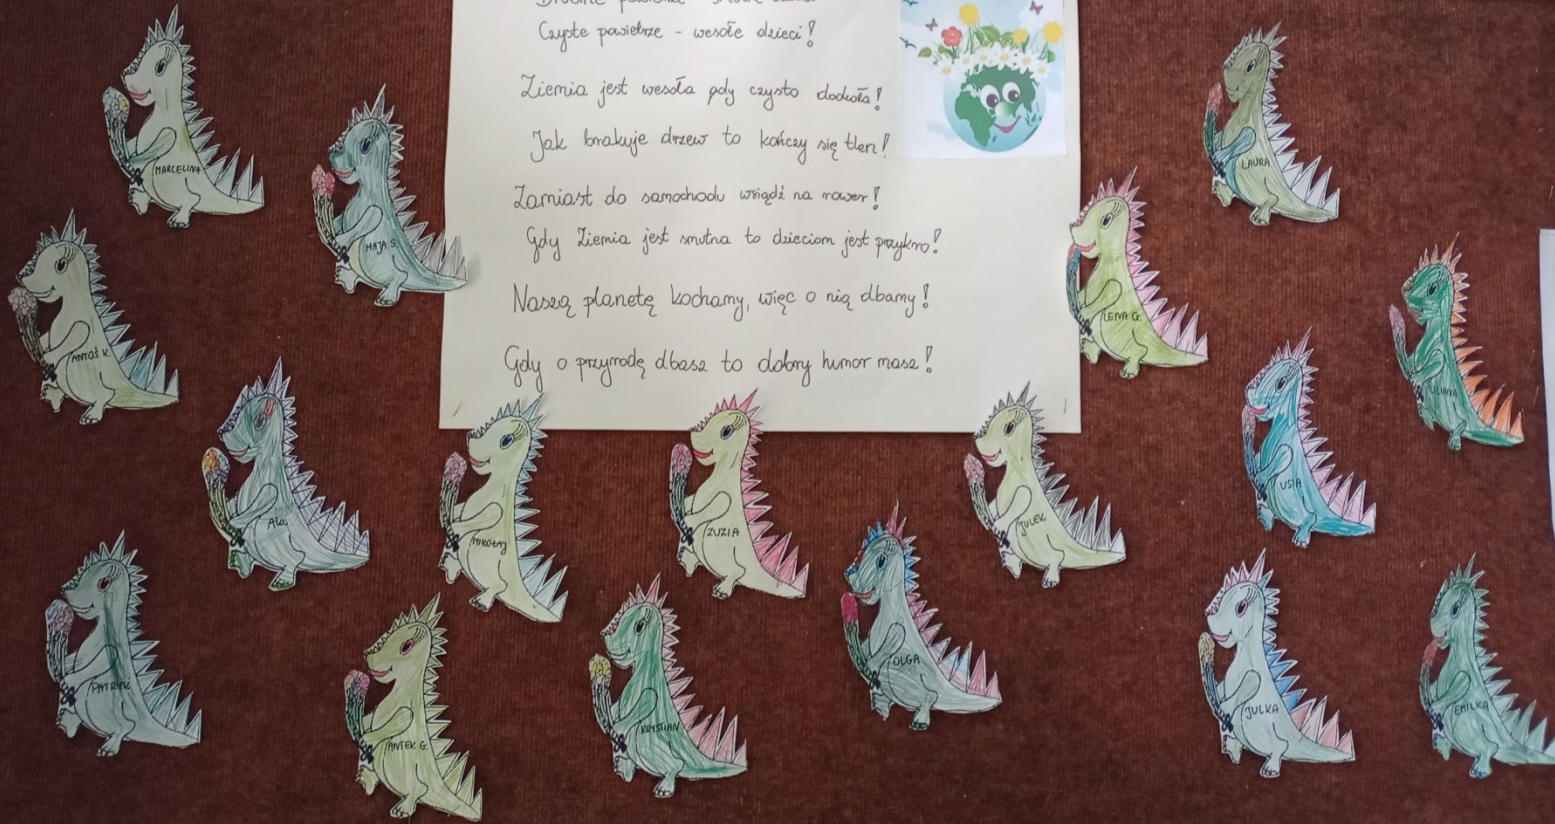 Czyste powietrze - wesołe dzieci!
Ziemia jest wesoła gdy czysto dookoła!
Jak brakuje drzew to kończy się tlen!
Zamiast do samochodu wsiądź na rower!
Gdy Ziemia jest smutna to dzieciom jest przykro!
Naszą planetę kochamy, więc o nią dbamy!
Gdy o przyrodę dbasz to dobry humor masz!
MARCELINA
MAJA S.
LAURA
ANTOŚ K.
LENA G.
LILIANA
ALA
MIKOŁAJ
ZUZIA
JULEK
USIA
PATRYK
ANTEK G.
KRYSTIAN
OLGA
JULKA
EMILKA